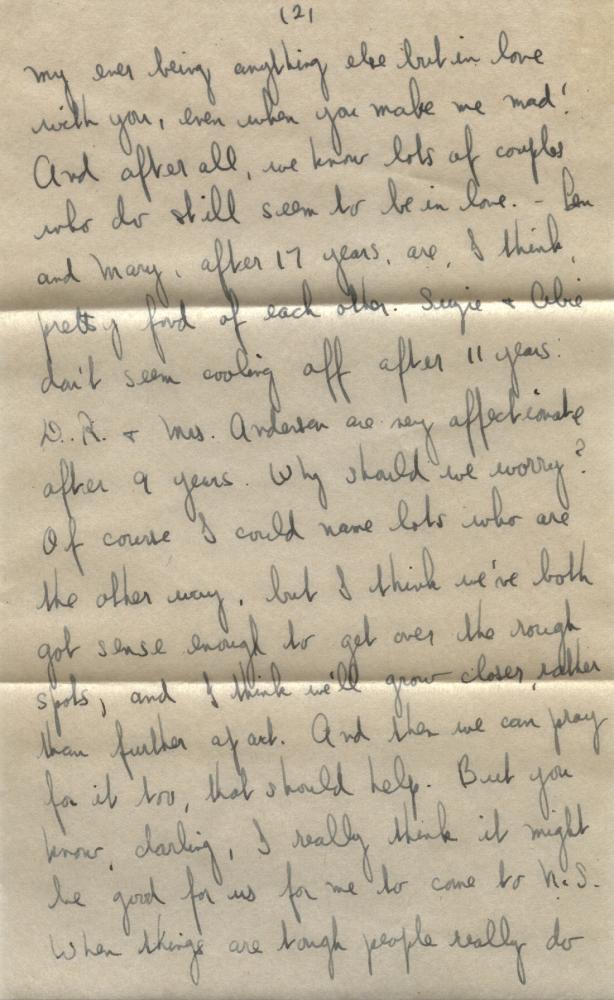 (2)
my ever being anything else but in love
with you, even when you make me mad!
And after all, we know lots of couples
who do still seem to be in love. - Len
and Mary, after 17 years, are, I think,
pretty fond of each other. Suzie + Abie
don't seem cooling off after 11 years.
D.R. + Mrs. Anderson are very affectionate
after 9 years. Why should we worry?
Of course I could name lots who are
the other way, but I think we've both
got sense enough to get over the rough
spots, and I think we'll grow closer, rather
than further apart. And then we can pray
for it too, that should help. But you
know, darling, I really think it might
be good for us for me to come to N.S.
When things are tough people really do